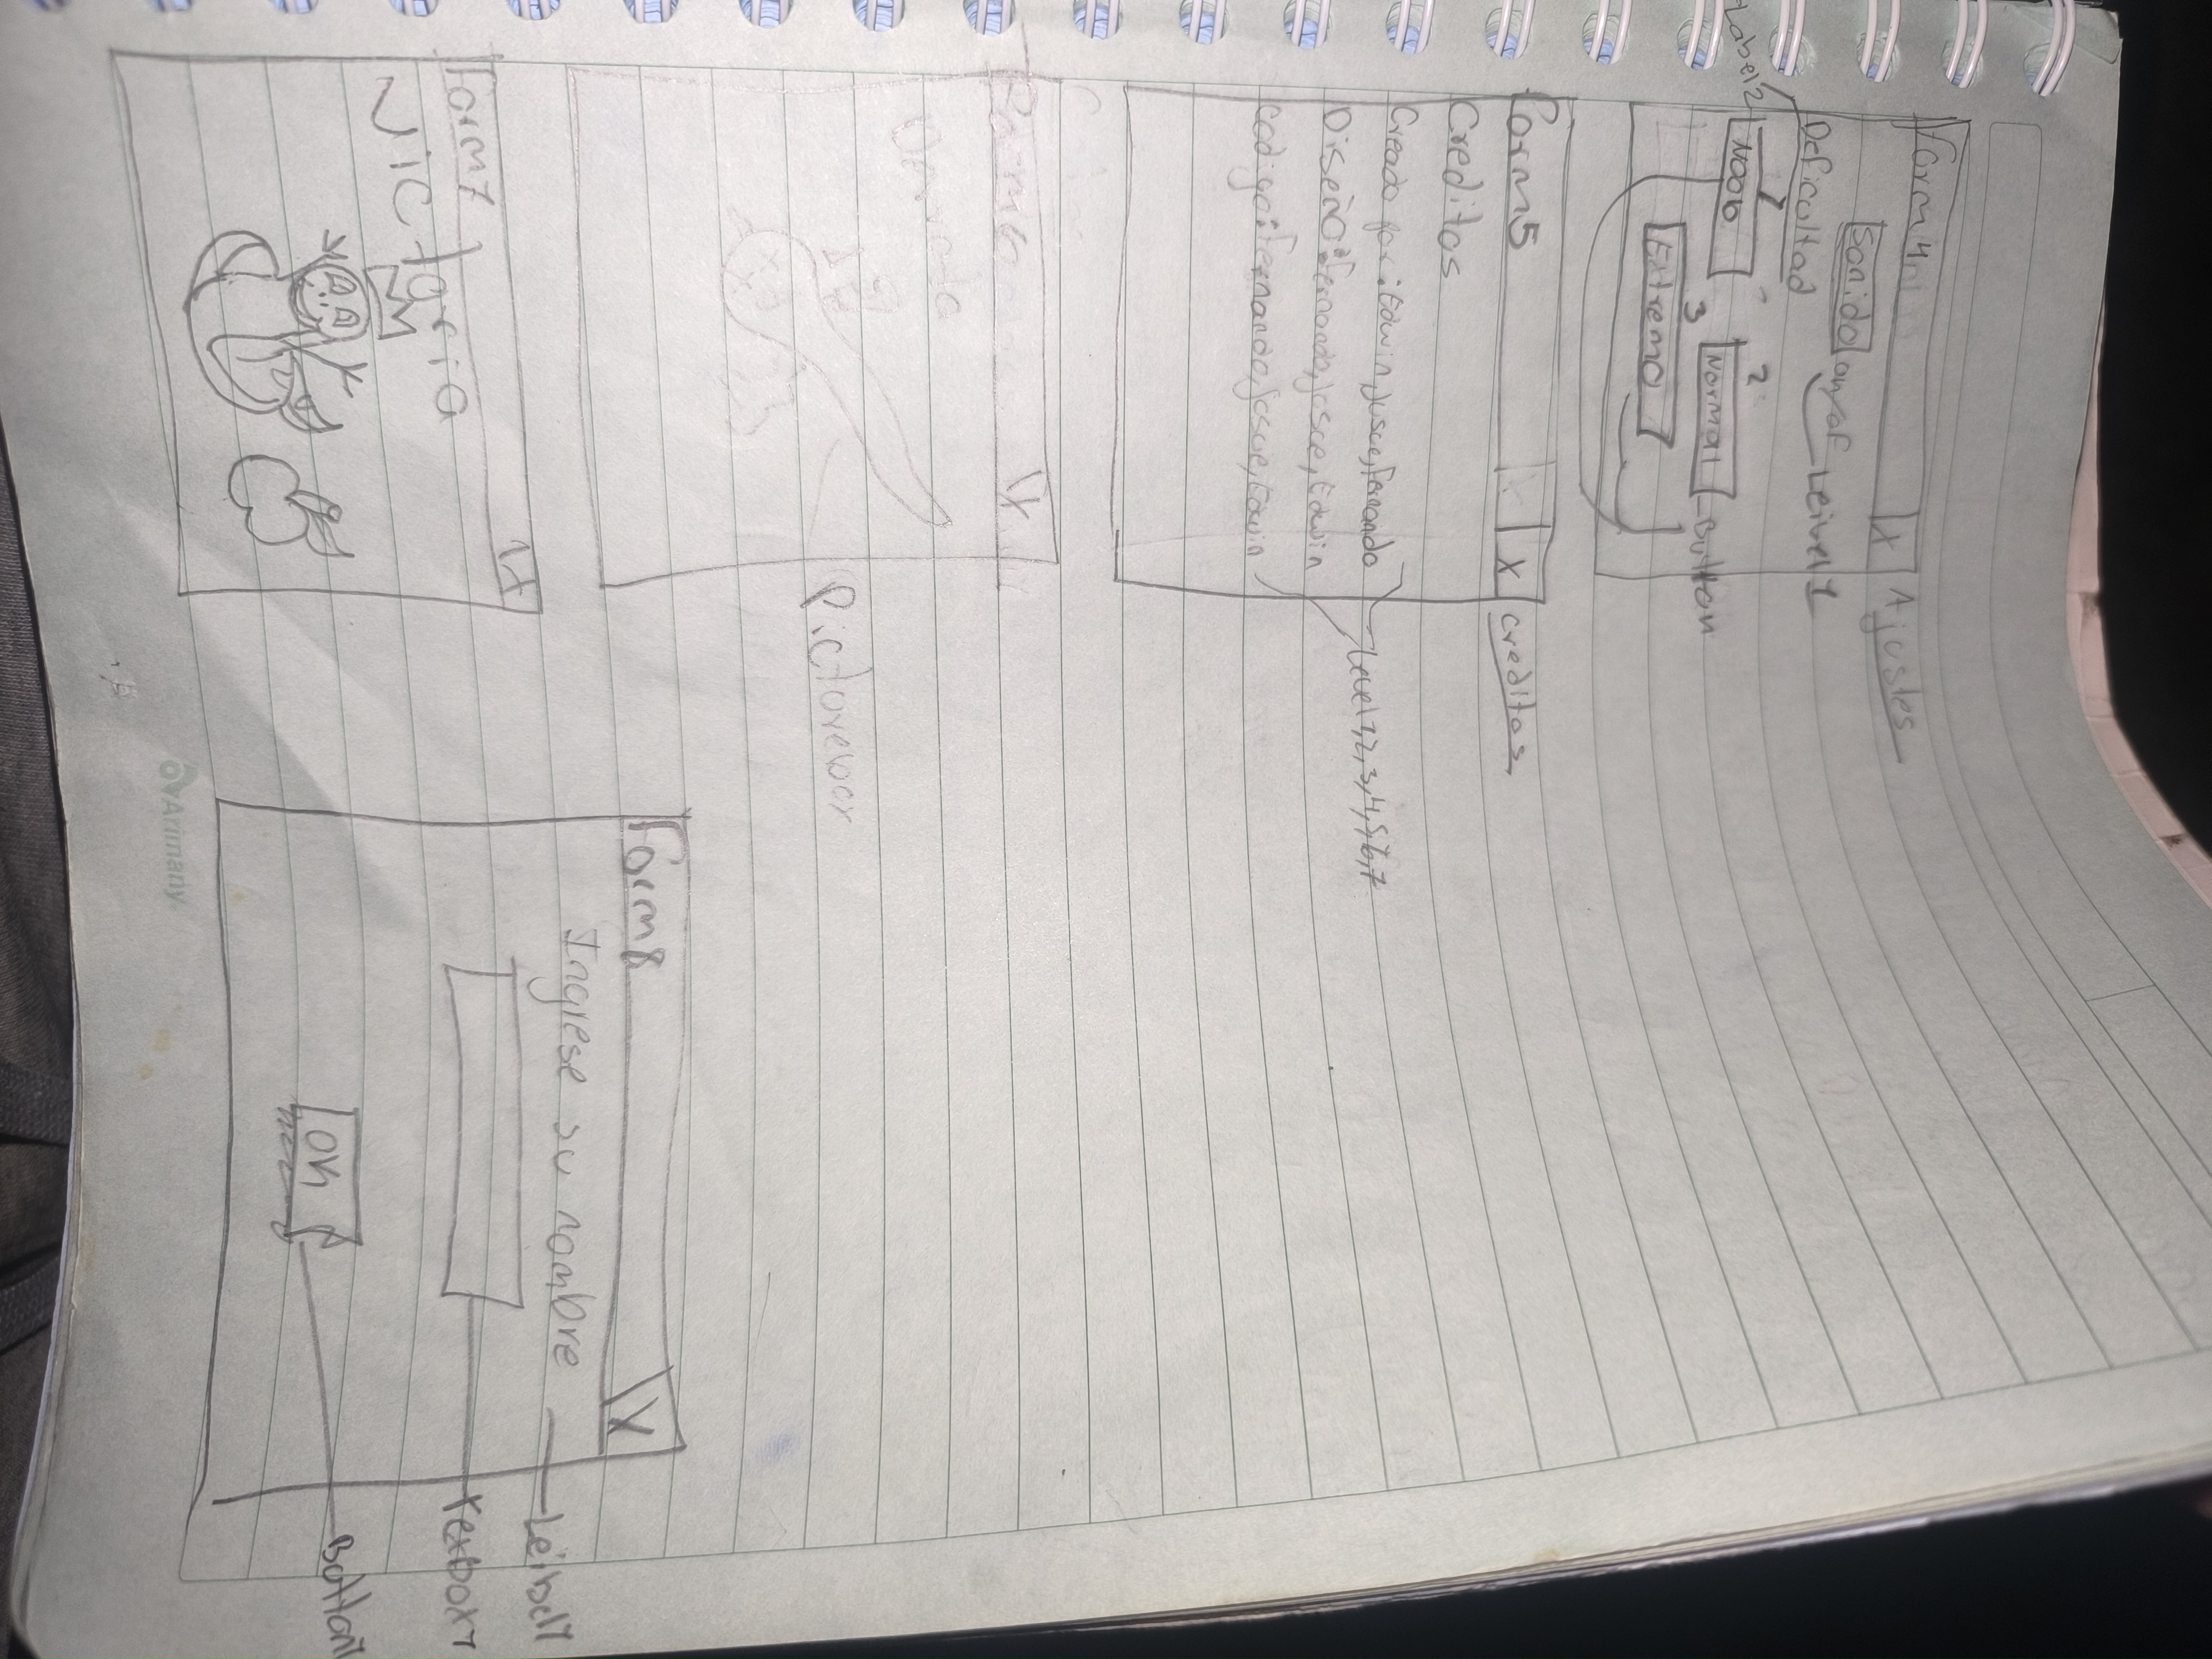 Form4
X
Ajustes
Sonido
on/of
Leivel1
Deficultad
Label2
1
Noob
2
Normal
Button
3
Extremo
Form5
X
creditos
Creditos
Creado por: Edwin, Jusue, Fernando
Diseño: Fernando, Josue, Edwin
Codigo: Fernando, Josue, Edwin
Level 1,2,3,4,5,6,7
X
Pictorevox
Form7
X
Victoria
Form8
X
Ingrese su nombre
Leibel1
Texbox1
OK
Button1
Arimany